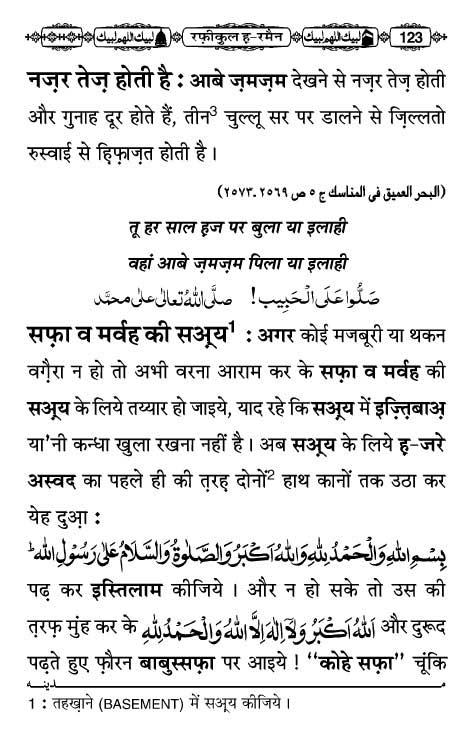 لبيك اللهم لبيك रफ़ीकुल ह-रमैन لبيك اللهم لبيك 123
नज़र तेज़ होती है : आबे ज़मज़म देखने से नज़र तेज़ होती
और गुनाह दूर होते हैं, तीन3 चुल्लू सर पर डालने से ज़िल्लतो
रुस्वाई से हिफ़ाज़त होती है ।
(البحر العميق فى المناسك ج ٥ ص ٢٥٦٩ ـ ٢٥٧٣)
तू हर साल हज पर बुला या इलाही
वहां आबे ज़मज़म पिला या इलाही
صَلُّوا عَلَى الْحَبِيب! صلَّى اللهُ تعالى على محمَّد
सफ़ा व मर्वह की सअ्य1 : अगर कोई मजबूरी या थकन
वग़ैरा न हो तो अभी वरना आराम कर के सफ़ा व मर्वह की
सअ्य के लिये तय्यार हो जाइये, याद रहे कि सअ्य में इज़्तिबाअ़
या'नी कन्धा खुला रखना नहीं है । अब सअ्य के लिये ह-जरे
अस्वद का पहले ही की त़रह़ दोनों2 हाथ कानों तक उठा कर
येह दुआ़ :
بِسْمِ اللهِ وَالْحَمْدُ لِلّٰهِ وَاللهُ اَكْبَرُ وَالصَّلٰوةُ وَالسَّلَامُ عَلٰى رَسُوْلِ اللهِ ط
पढ़ कर इस्तिलाम कीजिये । और न हो सके तो उस की
त़रफ़ मुंह कर के اَللهُ اَكْبَرُ وَلَآ اِلٰهَ اِلَّا اللهُ وَالْحَمْدُ لِلّٰهِ और दुरूद
पढ़ते हुए फ़ौरन बाबुस्सफ़ा पर आइये ! ‘‘कोहे सफ़ा’’ चूंकि
مدينه
1 : तहख़ाने (BASEMENT) में सअ्य कीजिये ।